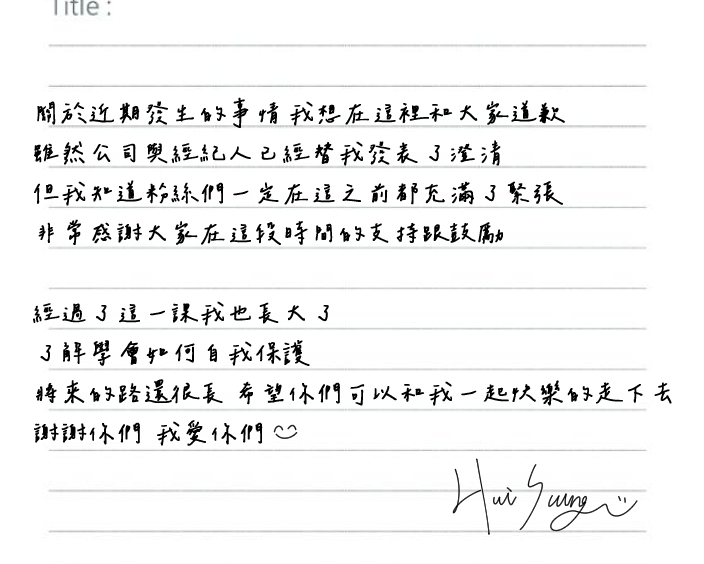 Title :
關於近期發生的事情 我想在這裡和大家道歉
雖然公司與經紀人已經替我發表了澄清
但我知道粉絲們一定在這之前都充滿了緊張
非常感謝大家在這段時間的支持跟鼓勵
經過了這一課我也長大了
了解學會如何自我保護
將來的路還很長 希望你們可以和我一起快樂的走下去
謝謝你們 我愛你們
Hui Sung